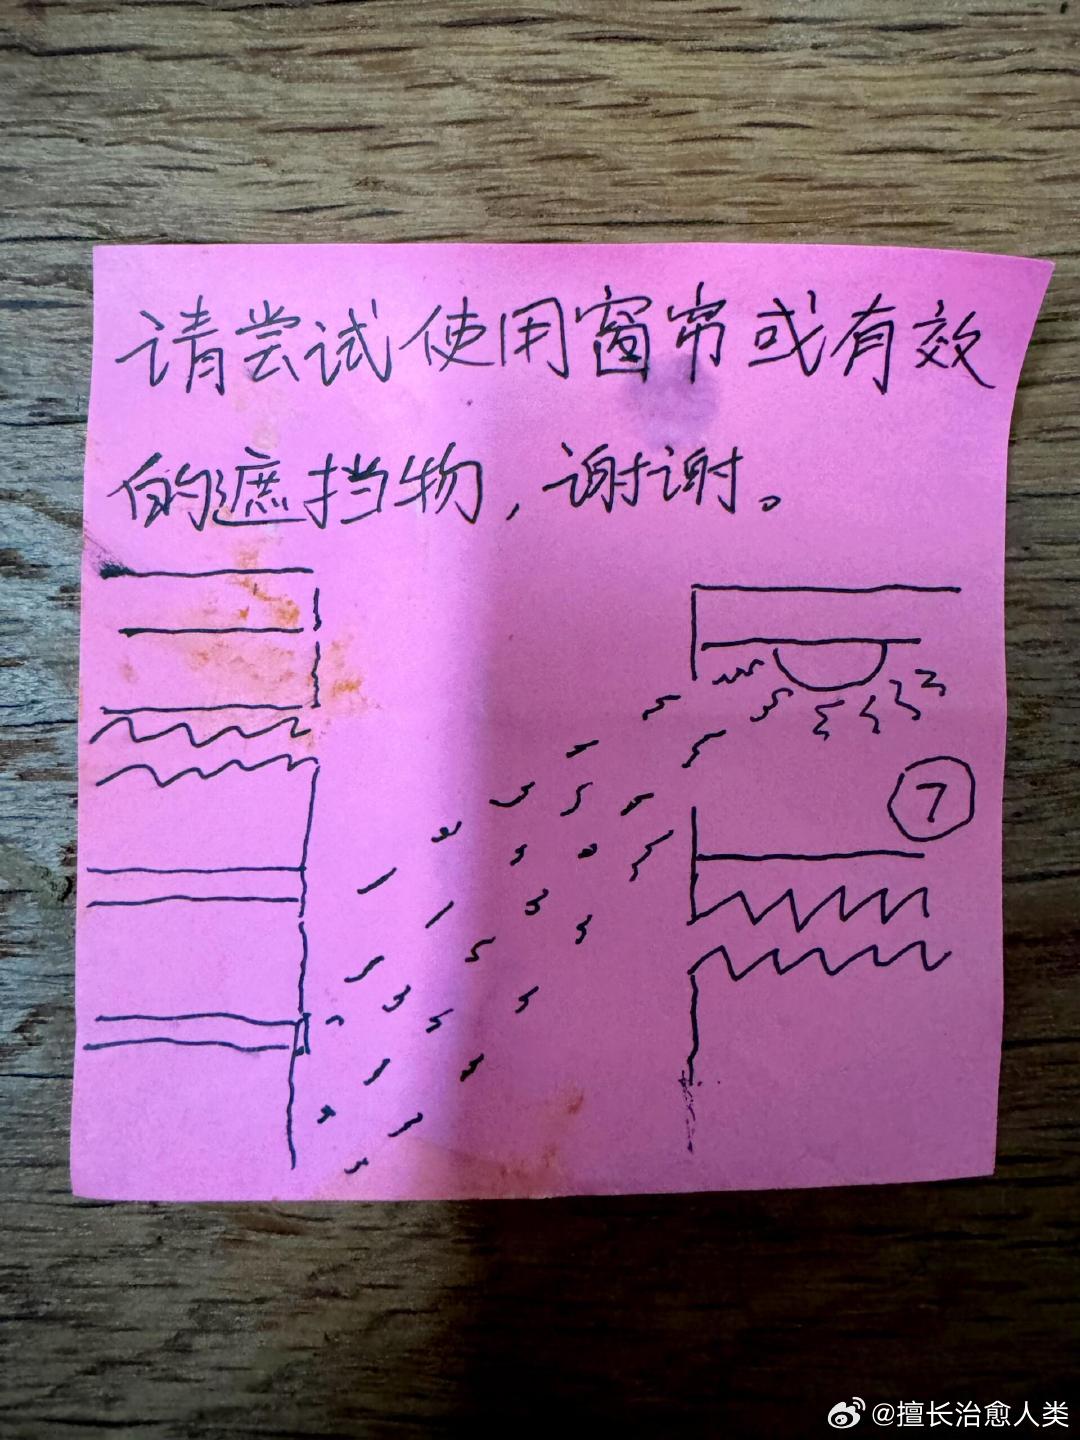 请尝试使用窗帘或有效
的遮挡物，谢谢。
7
@擅长治愈人类